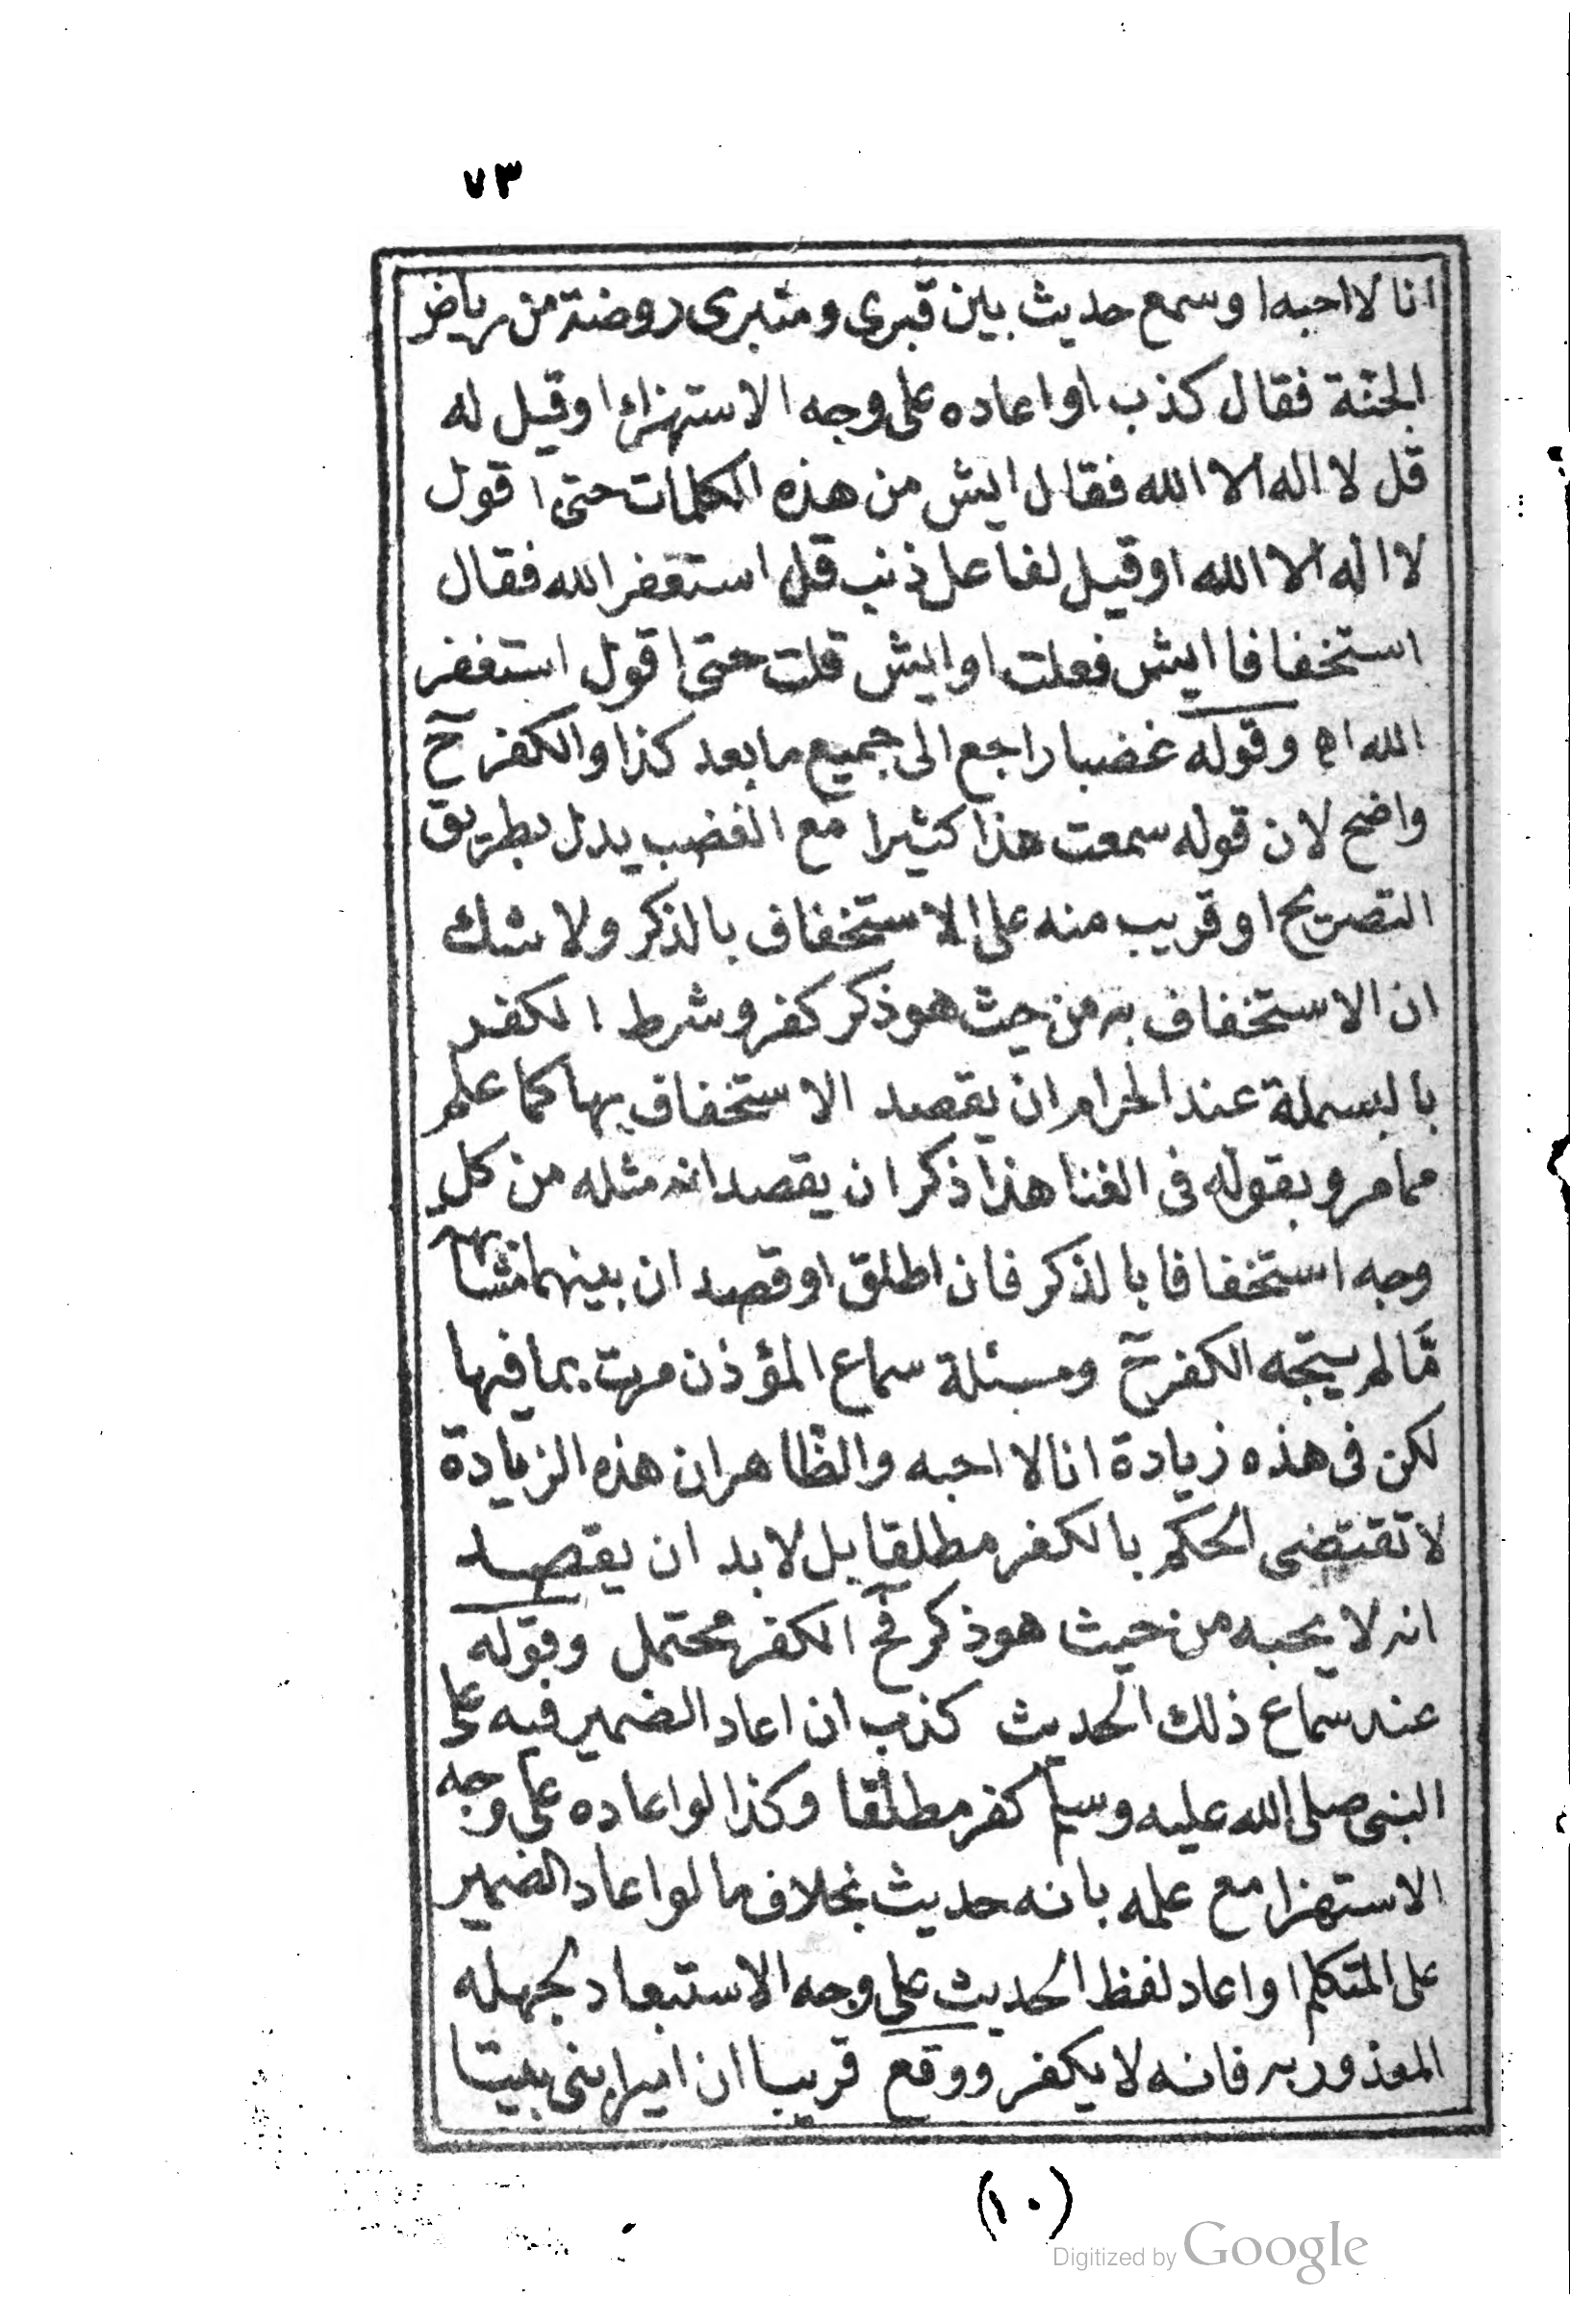 ٧٣
انا لا احبه او سمع حديث بين قبرى ومنبرى روضة من رياض
الجنة فقال كذب او اعاده على وجه الاستهزاء او قيل له
قل لا اله الا الله فقال ايش من هذه الكلمات حتى اقول
لا اله الا الله او قيل لفاعل ذنب قل استغفر الله فقال
استخفافا ايش فعلت او ايش قلت حتى اقول استغفر
الله اه وقوله غضبا راجع الى جميع ما بعد كذا والكفر ح
واضح لان قوله سمعت هذا كثيرا مع الغضب يدل بطريق
التصريح او قريب منه على الاستخفاف بالذكر ولا شك
ان الاستخفاف به من حيث هو ذكر كفر وشرط الكفر
بالبسملة عند الحرام ان يقصد الاستخفاف بها كما علم
مما مر وبقوله فى الغنا هذا ذكر ان يقصد انه مثله من كل
وجه استخفافا بالذكر فان اطلق او قصد ان بينهما مشابهه
مّا لم يتجه الكفر ح ومسئلة سماع المؤذن مرت بما فيها
لكن فى هذه زيادة انا لا احبه والظاهر ان هذه الزيادة
لا تقتضى الحكم بالكفر مطلقا بل لا بد ان يقصد
انه لا يحبه من حيث هو ذكر فح الكفر محتمل وقوله
عند سماع ذلك الحديث كذب ان اعاد الضمير فيه على
النبى صلى الله عليه وسلم كفر مطلقا وكذا لو اعاده على وجه
الاستهزا مع علمه بانه حديث بخلاف ما لو اعاد الضمير
على المتكلم او اعاد لفظ الحديث على وجه الاستبعاد لجهله
المعذور به فانه لا يكفر ووقع قريبا ان اميرا بنى بيتا
(١٠)
Digitized by Google